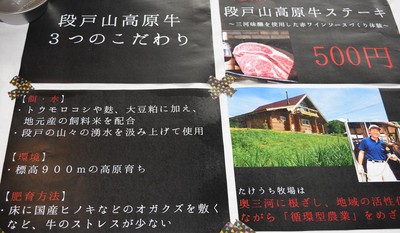 段戸山高原牛
３つのこだわり
【餌・水】
・トウモロコシや麩、大豆粕に加え、
地元産の飼料米を配合
・段戸の山々の湧水を汲み上げて使用
【環境】
・標高９００ｍの高原育ち
【肥育方法】
・床に国産ヒノキなどのオガクズを敷く
など、牛のストレスが少ない
段戸山高原牛ステーキ
～三河味醂を使用した赤ワインソースづくり体験～
500円
たけうち牧場は
奥三河に根ざし、地域の活性化
ながら「循環型農業」をめざ